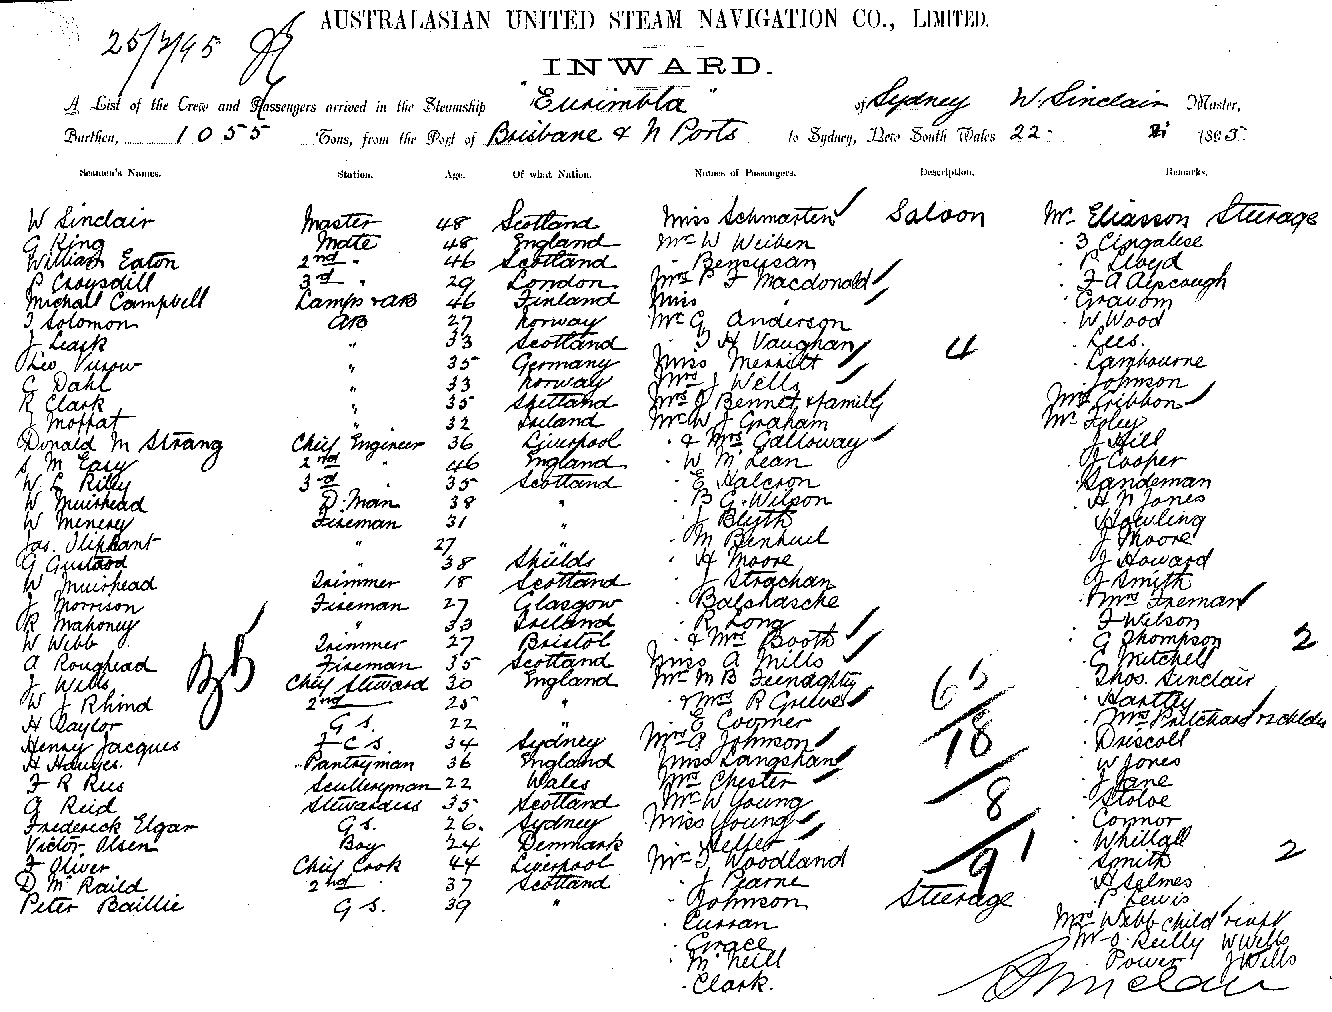 25/2/95
AUSTRALASIAN UNITED STEAM NAVIGATION CO., LIMITED.
INWARD.
A List of the Crew and Passengers arrived in the Steamship "Eurimbla" of Sydney W. Sinclair Master,
Burthen, 1055 Tons, from the Port of Brisbane & N Ports to Sydney, New South Wales 22 1895
Seamen's Names. Station. Age. Of what Nation. Names of Passengers. Description. Remarks.
W Sinclair Master 48 Scotland Miss Schmarten Saloon Mr Eliasson Steerage
G King Mate 48 England Mr W Weiben 3 Cingalese
William Eaton 2nd " 46 Scotland Bensusan P Lloyd
P Croysdill 3rd " 29 London Mrs P F Macdonald F A Alpcough
Michall Campbell Lamps & AB 46 Finland Miss " Gravom
J Solomon AB 27 Norway Mr G Anderson W Wood
J Leask " 33 Scotland T H Vaughan Lees.
Theo " 35 Germany Miss Merritt 4 Lambourne
C Dahl " 33 Norway Mrs J Wells Johnson
R Clark " 35 Shetland Mrs J Bennet & family Mrs Gribbon
J Moffat " 32 Ireland Mr W J Graham Mr Foley
Donald M Strang Chief Engineer 36 Liverpool " & Mrs Galloway J Hill
S M Easy 2nd " 46 England " W McLean J Cooper
W E Rilly 3rd " 35 Scotland " E Halcron Sandeman
W Muirhead D. Man 38 " " B G Wilson H N Jones
W Menery Fireman 31 " J Blyth Howling
Jas. Oliphant " 27 " M Benhuel J Moore
G " 38 Shields " H Moore J Howard
W Muirhead Trimmer 18 Scotland " J Strachan J Smith
J Morrison Fireman 27 Glasgow " Balshasche Mrs Freman
R Mahoney " 33 Ireland " R Long J Wilson
W Webb Trimmer 27 Bristol " & Mrs Booth G Thompson 2
A Roughead Fireman 35 Scotland Miss A Mills G Mitchell
J Wills Chief Steward 30 England Mr M B Thos. Sinclair
W J Rhind 2nd " 25 " " & Mrs R Greives 65 Hartley
H Taylor G S. 22 " " E Coomer Mrs Pritchard & 2 children
Henry Jacques F C S. 34 Sydney Mrs A Johnson 18 Driscoll
H Pantryman 36 England Miss Langshan W Jones
F R Rees Sculleryman 22 Wales Mrs Chester J Lane
A Reid Stewardess 35 Scotland Mr W Young 8 Stoloe
Frederick Elgar G S. 26. Sydney Miss Young Connor
Victor Olsen Boy 24 Denmark " Heffer Whittall
F Oliver Chief Cook 44 Liverpool Mr T Woodland 91 Smith 2
D McRaild 2nd " 37 Scotland " J Pearne H Holmes
Peter Baillie G S. 39 " " Johnson Steerage P Lewis
" Curran Mrs Webb child & inft
" Grace Mr O Reilly W Wells
" McNeill Power J Wells
" Clark.
W Sinclair